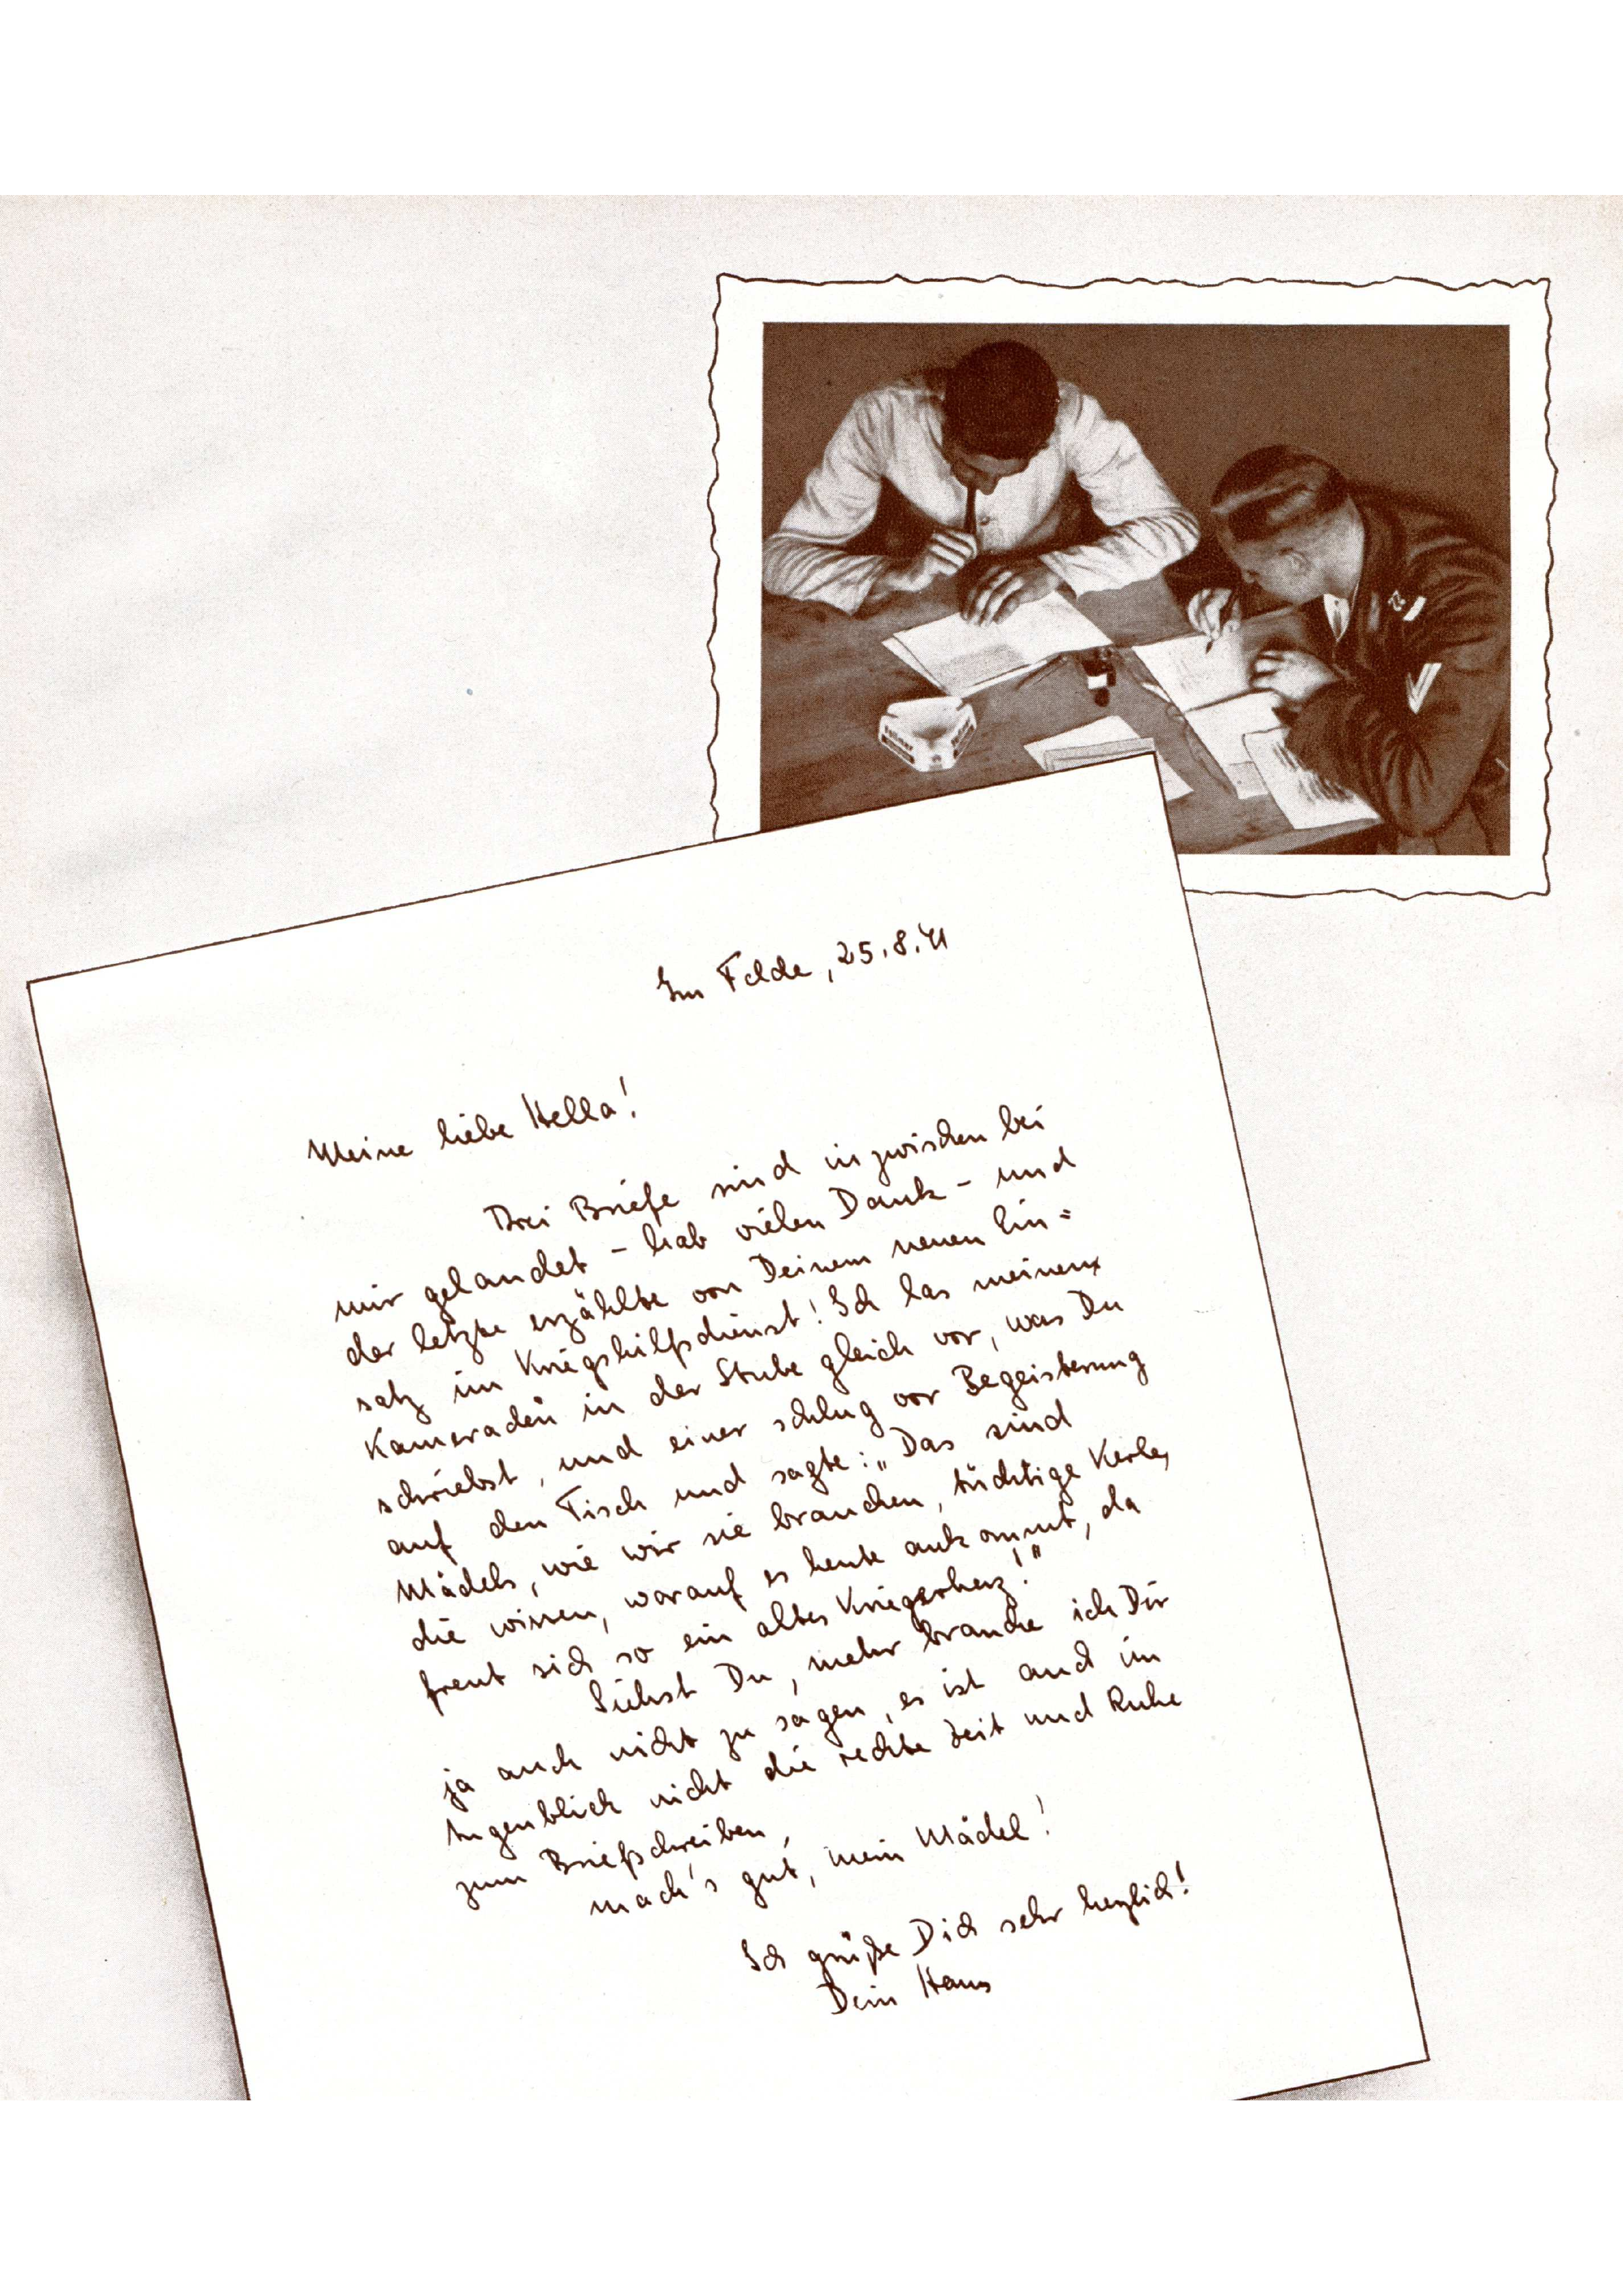 Im Felde, 25.8.41
Meine liebe Hella!
Drei Briefe sind inzwischen bei
mir gelandet - hab vielen Dank - und
der letzte erzählte von Deinem neuen Ein=
satz im Kriegshilfsdienst! Ich las meinen
Kameraden in der Stube gleich vor, was Du
schriebst, und einer schlug vor Begeisterung
auf den Tisch und sagte: „Das sind
Mädels, wie wir sie brauchen, tüchtige Kerle,
die wissen, worauf es heute ankommt, da
freut sich so ein altes Kriegerherz!"
Siehst Du, mehr brauche ich Dir
ja auch nicht zu sagen, es ist auch im
Augenblick nicht die rechte Zeit und Ruhe
zum Briefschreiben,
mach's gut, mein Mädel!
Ich grüße Dich sehr herzlich!
Dein Hans